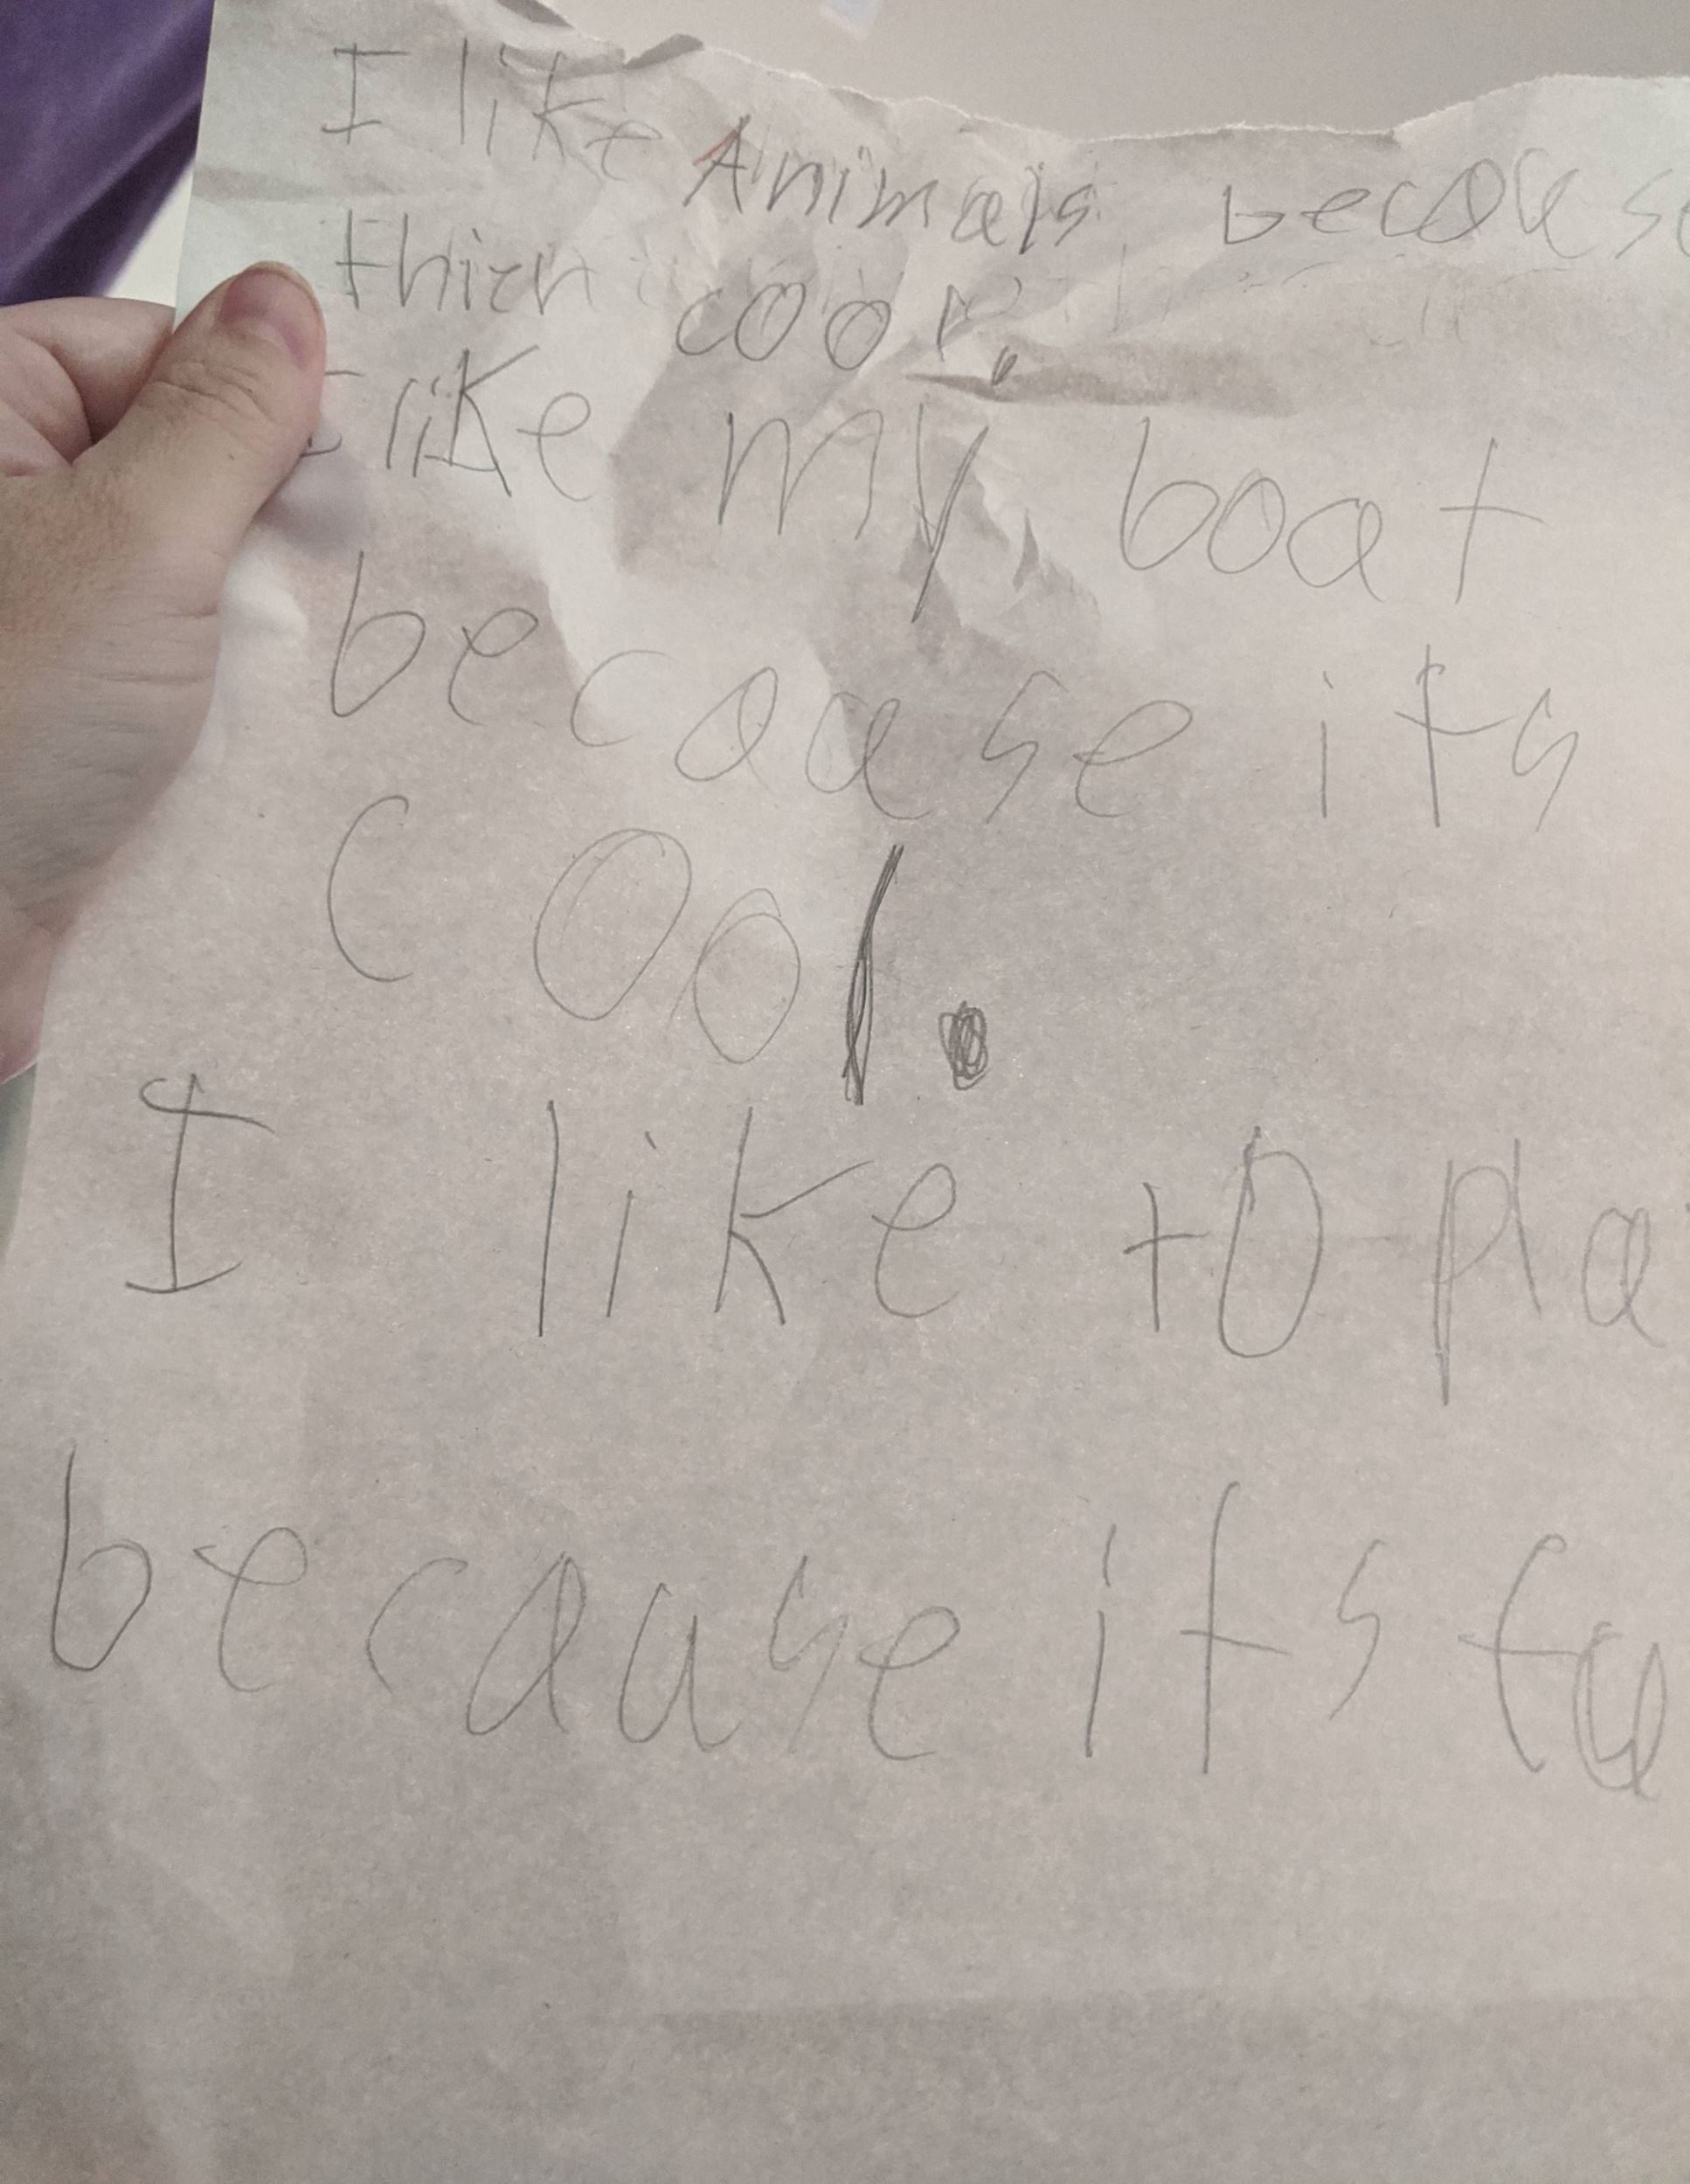 I like Animals because
thien cool.
I like my boat
because its
cool.
I like to pla
because its fu